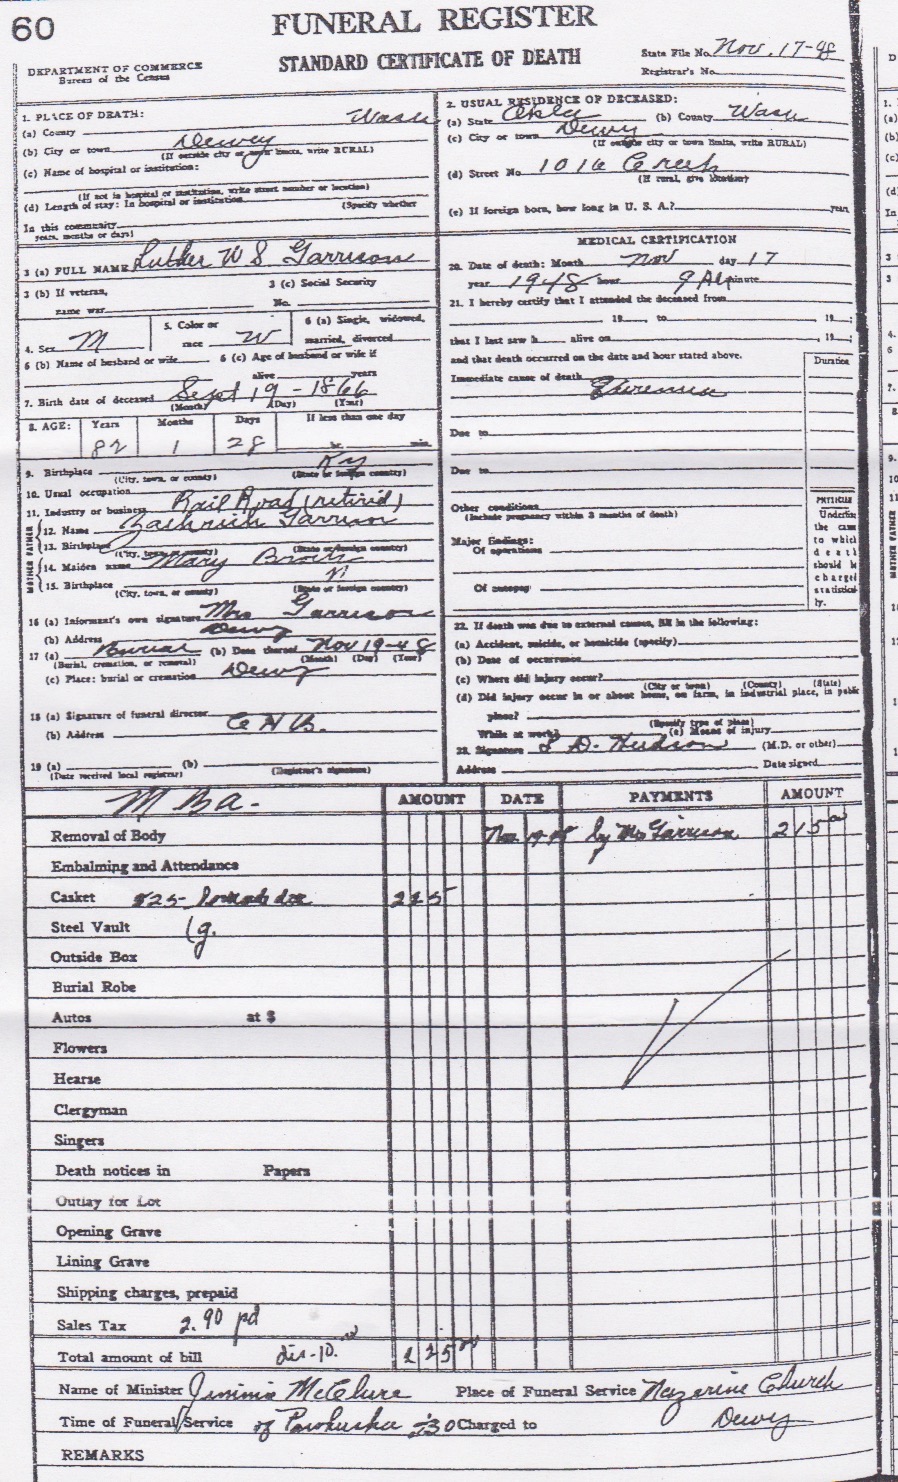 60
FUNERAL REGISTER
STANDARD CERTIFICATE OF DEATH
State File No. Nov. 17-48
Registrar's No.
DEPARTMENT OF COMMERCE
Bureau of the Census
1. PLACE OF DEATH:
(a) County Wash
(b) City or town Dewey
(If outside city or town limits, write RURAL)
(c) Name of hospital or institution:
(If not in hospital or institution, write street number or location)
(d) Length of stay: In hospital or institution
(Specify whether
In this community
years, months or days)
2. USUAL RESIDENCE OF DECEASED:
(a) State Okla (b) County Wash
(c) City or town Dewy
(If outside city or town limits, write RURAL)
(d) Street No. 1016 Creek
(If rural, give location)
(e) If foreign born, how long in U. S. A.? years
3 (a) FULL NAME Luther W S Garrison
3 (b) If veteran, 3 (c) Social Security
name war No.
4. Sex M
5. Color or
race W
6 (a) Single, widowed,
married, divorced
6 (b) Name of husband or wife 6 (c) Age of husband or wife if
alive years
7. Birth date of deceased Sept 19 - 1866
(Month) (Day) (Year)
8. AGE: Years Months Days If less than one day
82 1 28
9. Birthplace Ky
(City, town, or county) (State or foreign country)
10. Usual occupation
11. Industry or business Rail Road (retired)
FATHER
12. Name Garrison
13. Birthplace
(City, town, or county) (State or foreign country)
MOTHER
14. Maiden name Mary Brown
15. Birthplace
(City, town, or county) (State or foreign country)
16 (a) Informant's own signature Mrs Garrison
(b) Address Dewy
17 (a) Burial (b) Date thereof Nov 19-48
(Burial, cremation, or removal) (Month) (Day) (Year)
(c) Place: burial or cremation Dewy
18 (a) Signature of funeral director
(b) Address
19 (a) (b)
(Date received local registrar) (Registrar's signature)
MEDICAL CERTIFICATION
20. Date of death: Month Nov day 17
year 1948 hour 9 A minute
21. I hereby certify that I attended the deceased from
19 , to 19 ;
that I last saw h alive on , 19 ;
and that death occurred on the date and hour stated above.
Duration
Immediate cause of death
Due to
Due to
Other conditions
(Include pregnancy within 3 months of death)
Major findings:
Of operations
Of autopsy
PHYSICIAN
Underline
the cause
to which
death
should be
charged
statistical-
ly.
22. If death was due to external causes, fill in the following:
(a) Accident, suicide, or homicide (specify)
(b) Date of occurrence
(c) Where did injury occur?
(City or town) (County) (State)
(d) Did injury occur in or about home, on farm, in industrial place, in public
place?
(Specify type of place)
While at work? (e) Means of injury
23. Signature L D. Hudson (M.D. or other)
Address Date signed
M B A. AMOUNT DATE PAYMENTS AMOUNT
Removal of Body Nov. 19-48 by Mrs Garrison 215 00
Embalming and Attendance
Casket 825- 225
Steel Vault
Outside Box
Burial Robe
Autos at $
Flowers
Hearse
Clergyman
Singers
Death notices in Papers
Outlay for Lot
Opening Grave
Lining Grave
Shipping charges, prepaid
Sales Tax 2.90 pd
Total amount of bill dis-10.00 225 00
Name of Minister Jimmie McClure Place of Funeral Service Nazerine Church
Time of Funeral Service of Pawhuska 2:30 Charged to Dewy
REMARKS